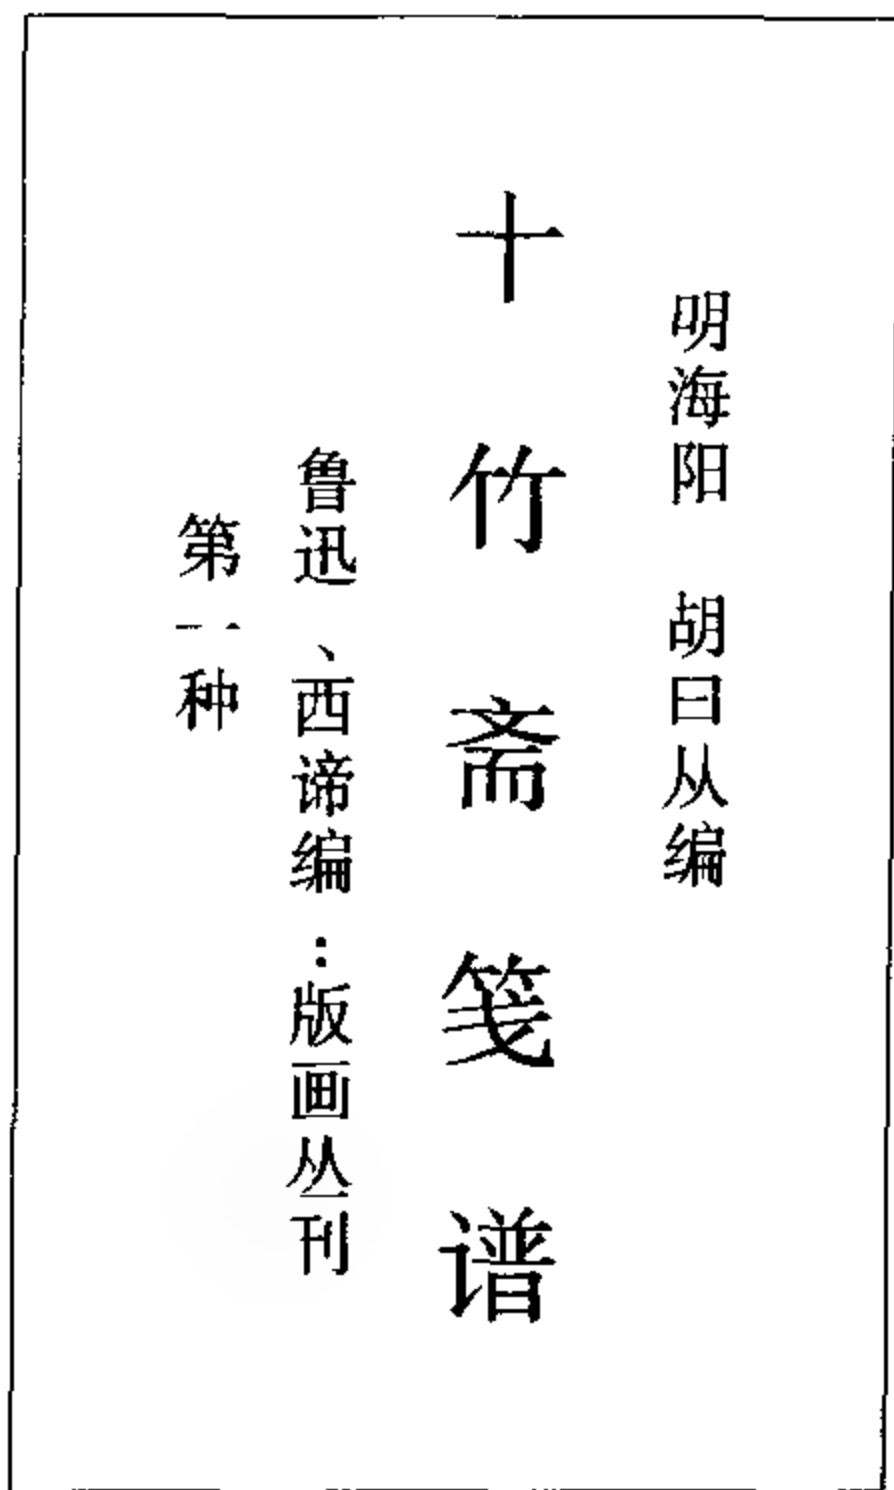 明海阳 胡曰从编
十竹斋笺谱
鲁迅、西谛编：版画丛刊
第一种